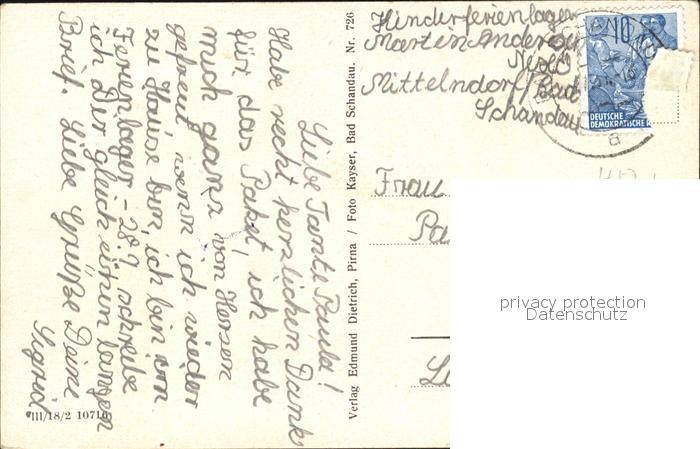 Liebe Tante Paula!
Habe recht herzlichen Dank
für das Paket, ich habe
mich ganz von Herzen
gefreut wenn ich wieder
zu Hause bin, ich bin im
Ferienlager - 28.7 schreibe
ich Dir gleich einen langen
Brief. Liebe Grüße Deine
Sigrid
III/18/2 10716
Verlag Edmund Dietrich, Pirna / Foto Kayser, Bad Schandau. Nr. 726
Kinderferienlager
Martin Andersen
Nexö
Mittelndorf/Bad
Schandau
10
DEUTSCHE
DEMOKRATISCHE R
a
Frau
Pa
privacy protection
Datenschutz